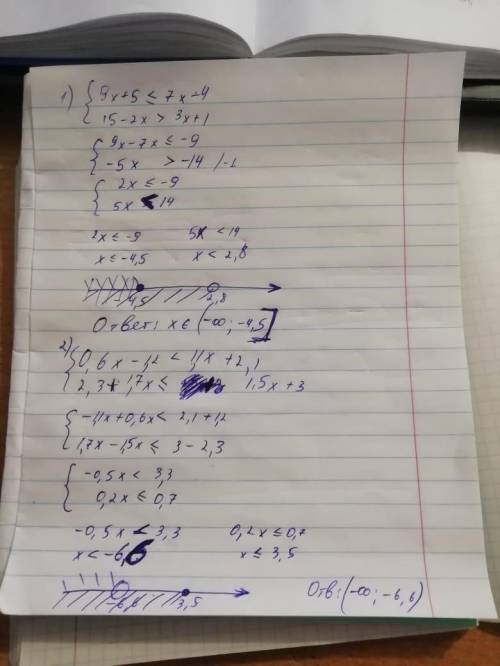 1) { 9x+5 ≤ 7x-4
15-2x > 3x+1
{ 9x-7x ≤ -9
-5x > -14 /-1
{ 2x ≤ -9
5x < 14
2x ≤ -9 5x < 14
x ≤ -4,5 x < 2,8
-4,5 2,8
Ответ: x ∈ (-∞; -4,5]
2) { 0,6x - 1,2 < 1,1x + 2,1
2,3 + 1,7x ≤ 1,5x + 3
{ -1,1x + 0,6x < 2,1 + 1,2
1,7x - 1,5x ≤ 3 - 2,3
{ -0,5x < 3,3
0,2x ≤ 0,7
-0,5x < 3,3 0,2x ≤ 0,7
x < -6,6 x ≤ 3,5
-6,6 3,5 Отв: (-∞; -6,6)